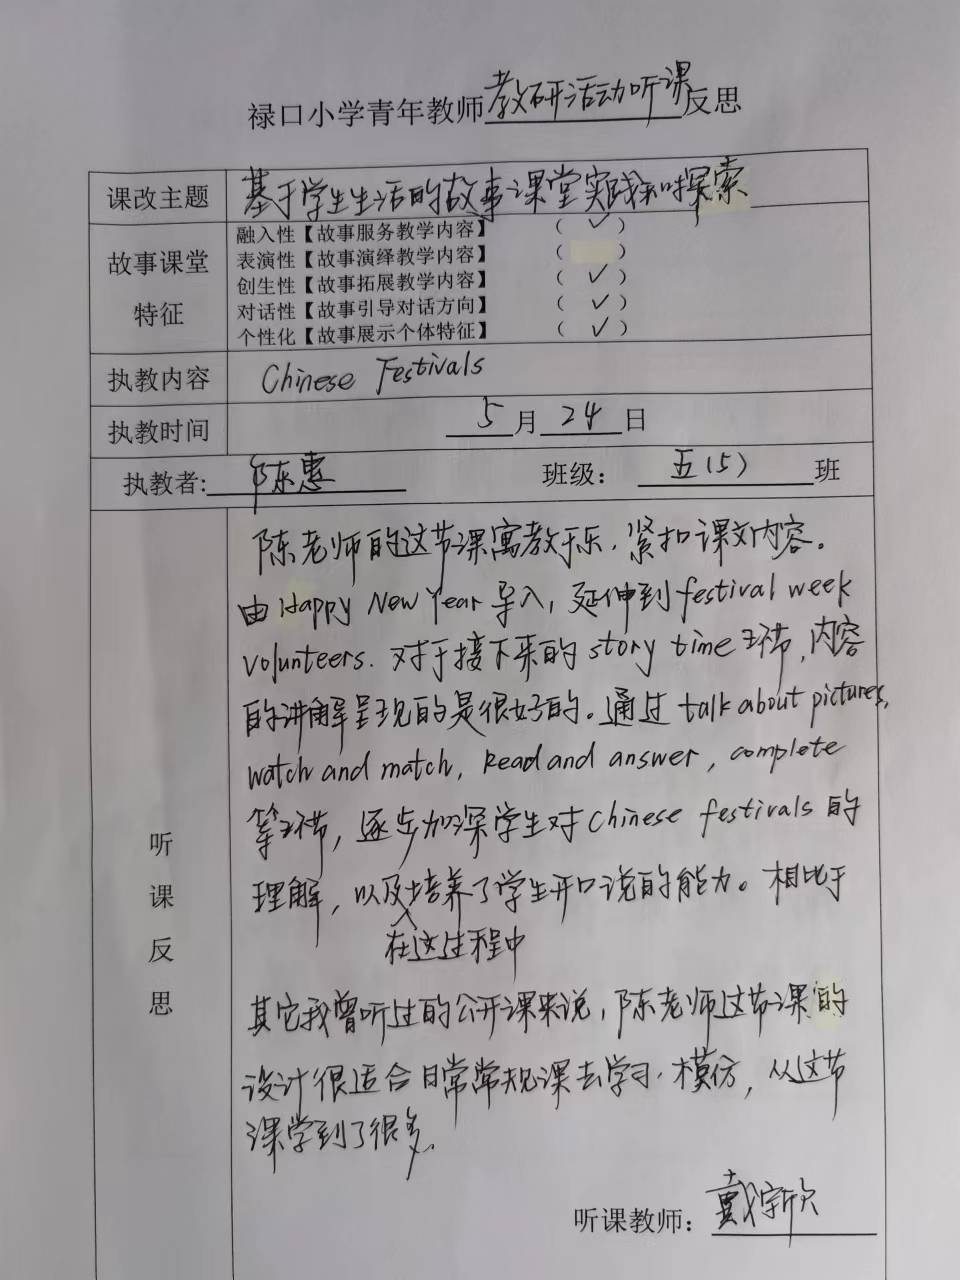 禄口小学青年教师教研活动听课反思
课改主题 基于学生生活的故事课堂实践和探索
故事课堂特征
融入性【故事服务教学内容】 （ ✓ ）
表演性【故事演绎教学内容】 （ ）
创生性【故事拓展教学内容】 （ ✓ ）
对话性【故事引导对话方向】 （ ✓ ）
个性化【故事展示个体特征】 （ ✓ ）
执教内容 Chinese Festivals
执教时间 5月24日
执教者: 陈惠 班级： 五(5)班
听课反思
陈老师的这节课寓教于乐，紧扣课文内容。
由Happy New Year导入，延伸到festival week
volunteers. 对于接下来的story time环节，内容
的讲解呈现的是很好的。通过talk about pictures,
watch and match, Read and answer, complete
等环节，逐步加深学生对Chinese festivals的
理解，以及培养了学生开口说的能力。相比于
在这过程中
其它我曾听过的公开课来说，陈老师这节课的
设计很适合日常常规课去学习、模仿，从这节
课学到了很多。
听课教师：戴新欣